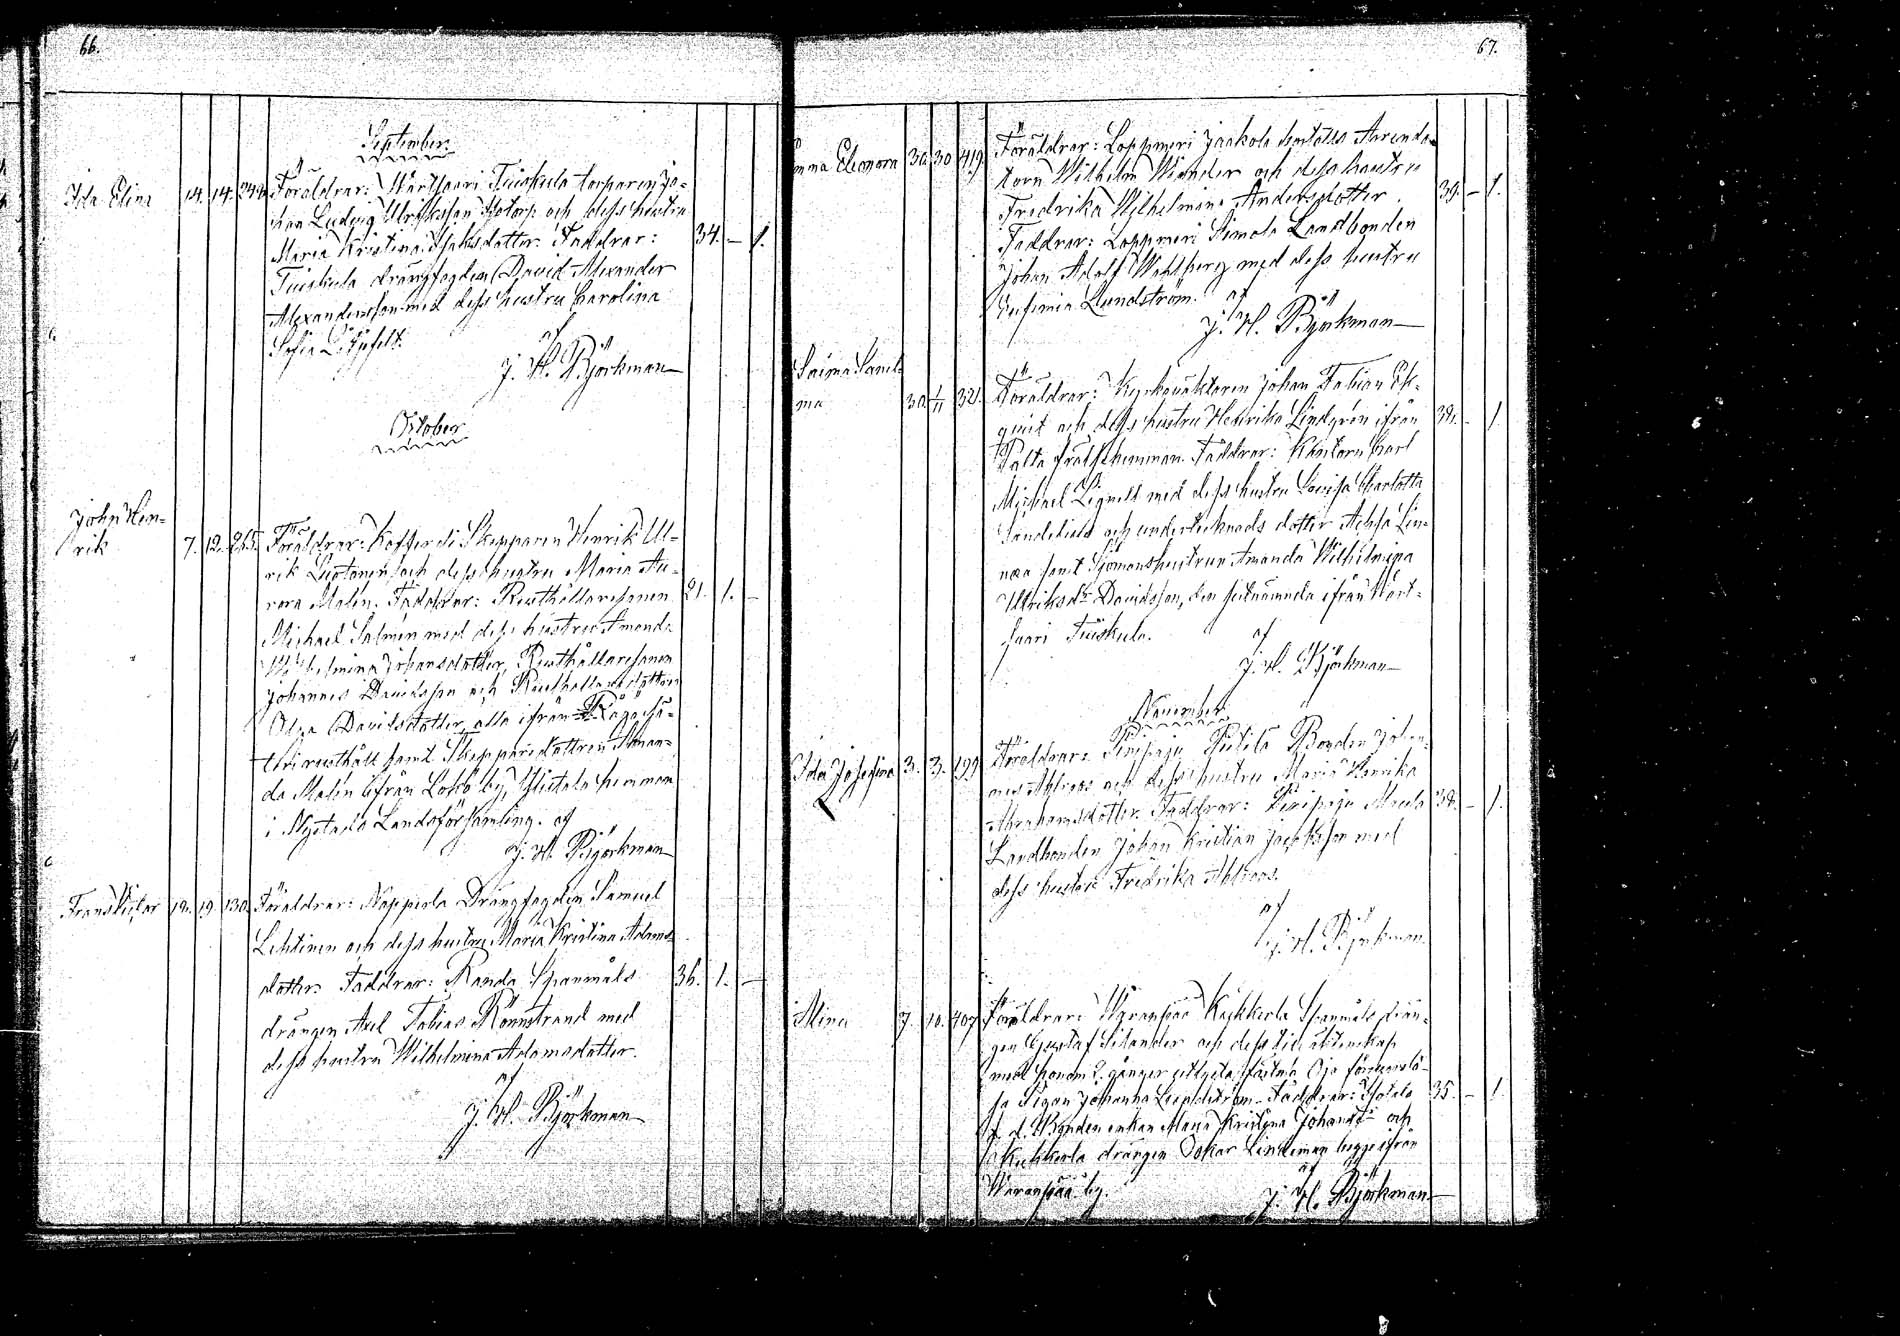 66.
September.
Ida Elina 14. 14. 248. Föräldrar: Wartsaari Tuiskula torparen Jo-
han Ludvig Ulriksson och dess hustru
Maria Kristina Isaksdotter. Faddrar: 34. — 1.
Tuiskula drängfogden David Alexander
Alexandersson med dess hustru Carolina
Sofia
af
J. W. Björkman
October
John Hen-
rik 7. 12. 265. Föräldrar: Kofferdi Skepparen Henrik Ul-
rik Luotonen och dess hustru Maria Au-
rora Malén. Faddrar: Rusthållaresonen 21. 1. —
Michael Salmén med dess hustru Amanda
Wilhelmina Johansdotter, Rusthållaresonen
Johannes Davidsson och Rusthållaredottren
Olga Davidsdotter, alla ifrån
rusthåll samt Skepparedottren Aman-
da Malén ifrån Lokö by, hemman
i Nystads Landsförsamling. af
J. W. Björkman
Frans Victor 18. 19. 130. Föräldrar: Napperla Drängfogden Samuel
Lehtinen och dess hustru Maria Kristina Adams-
dotter. Faddrar: Randa Spanmåls 36. 1. —
drängen Axel Tobias Rönnstrand med
dess hustru Wilhelmina Adamsdotter.
af
J. W. Björkman
67.
Emma Eleonora 30. 30 419. Föräldrar: Loppmeri Jaakola Arrenda-
torn Wilhelm Wiander och dess hustru
Fredrika Wilhelmina Andersdotter. 39. — 1.
Faddrar: Loppmeri Simola Landbonden
Johan Adolf Wahlberg med dess hustru
Eufemia Lundström. af
J. W. Björkman
Saima
30. 1/11 321. Föräldrar: Kyrkovaktaren Johan Fabian Ek-
qvist och dess hustru Henrika Lindgrén ifrån 38. — 1.
Palta frälsehemman. Faddrar: Kantorn Karl
Michael Lignell med dess hustru Lovisa Charlotta
Sandelius och undertecknads dotter Lin-
nea samt Sjömanshustrun Amanda Wilhelmina
Ulriksdr Davidsson, den sistnämnda ifrån Wart-
saari Tuiskula.
af
J. W. Björkman
November
Ida Josefina 3. 3. 199. Föräldrar: Pietilä Bonden Johan-
nes Ahlroos och dess hustru Maria Henrika
Abrahamsdotter. Faddrar: 38. — 1.
Landbonden Johan Kristian Jacobsson med
dess hustru Fredrika Ahlroos.
af
J. W. Björkman
Mina 7. 10. 407. Föräldrar: Waranpää Kukkerla Spanmåls drän-
gen Gustaf Silander och dess till äktenskap
med honom 2. gånger utlysta fästmö
Pigan Johanna Lindström. Faddrar: 35. — 1.
f. d. Bonden enkan Maria Kristina Johansdr och
Kukkerla drängen Oskar Lindeman begge ifrån
Waranpää by. af
J. W. Björkman